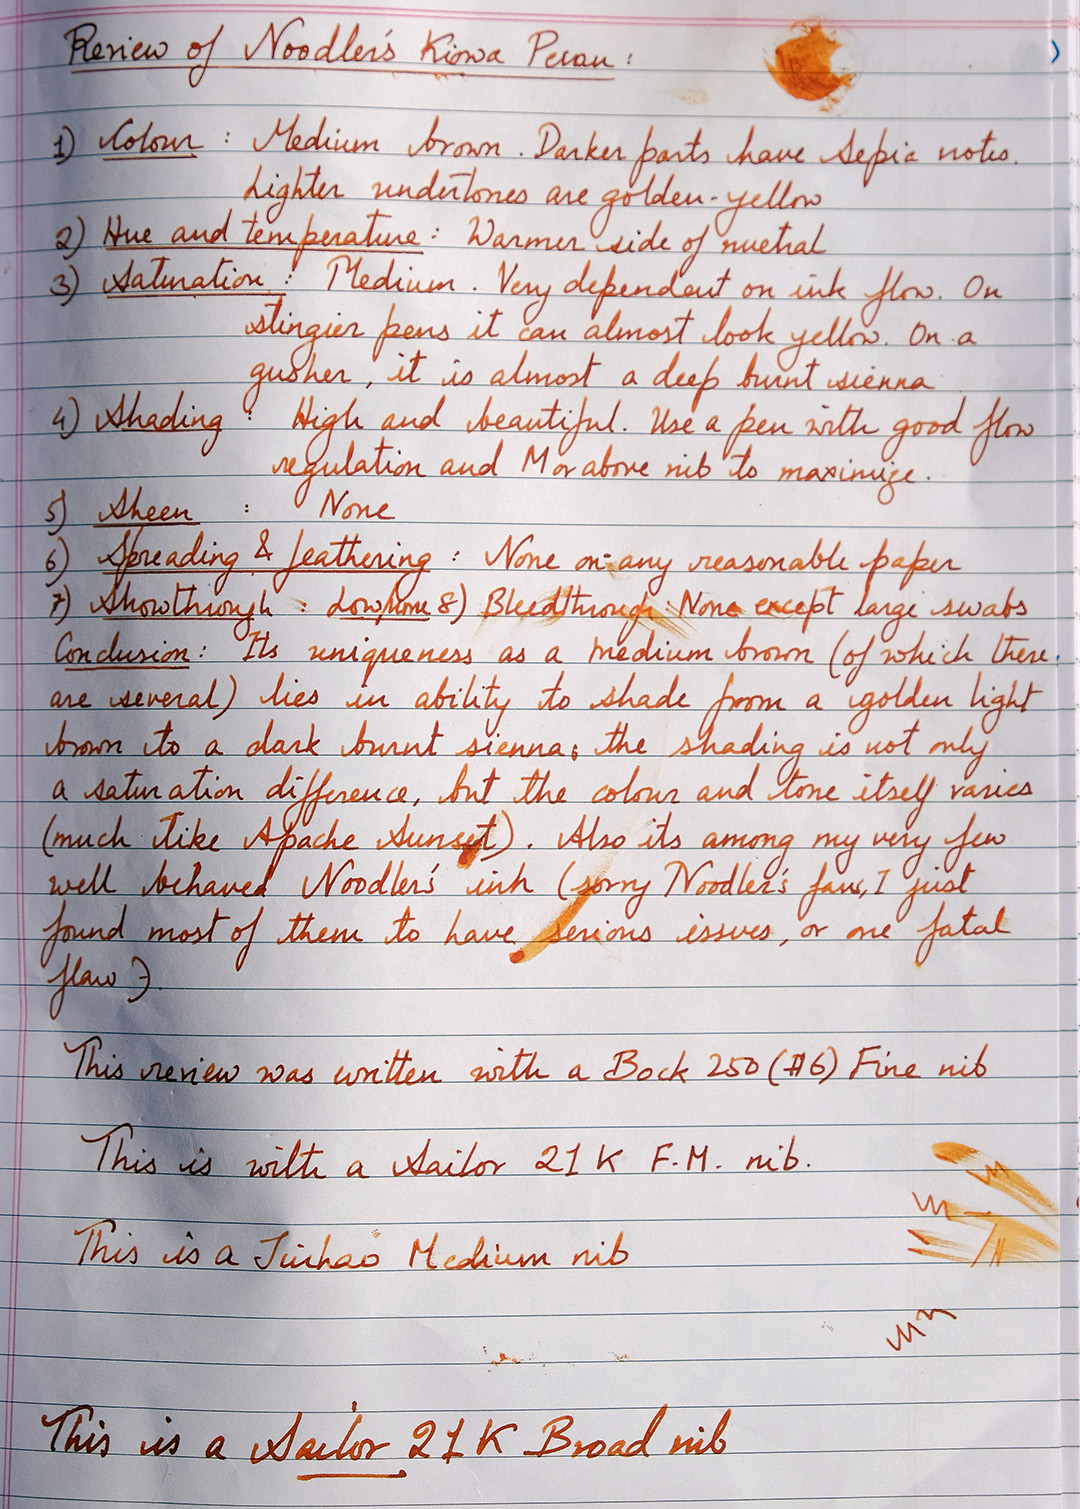 Review of Noodler's Kiowa Pecan :
1) Colour : Medium brown. Darker parts have sepia notes.
Lighter undertones are golden-yellow
2) Hue and temperature : Warmer side of nuetral
3) Saturation : Medium. Very dependent on ink flow. On
stingier pens it can almost look yellow. On a
gusher, it is almost a deep burnt sienna
4) Shading : High and beautiful. Use a pen with good flow
regulation and M or above nib to maximize.
5) Sheen : None
6) Spreading & feathering : None on any reasonable paper
7) Showthrough : 8) Bleedthrough None except large swabs
Conclusion : Its uniqueness as a medium brown (of which there
are several) lies in ability to shade from a golden light
brown to a dark burnt sienna; the shading is not only
a saturation difference, but the colour and tone itself varies
(much like Apache Sunset). Also its among my very few
well behaved Noodler's ink (sorry Noodler's fans, I just
found most of them to have serious issues, or one fatal
flaw).
This review was written with a Bock 250 (#6) Fine nib
This is with a Sailor 21K F.M. nib.
This is a Jinhao Medium nib
This is a Sailor 21K Broad nib